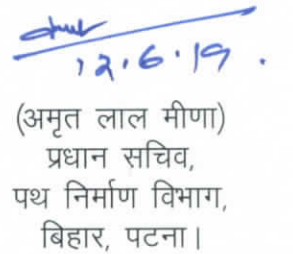 12.6.19.
(अमृत लाल मीणा)
प्रधान सचिव,
पथ निर्माण विभाग,
बिहार, पटना।